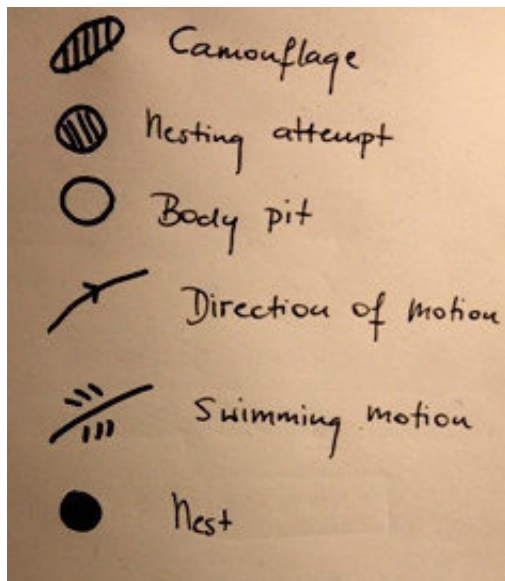 Camouflage
Nesting attempt
Body pit
Direction of motion
Swimming motion
Nest